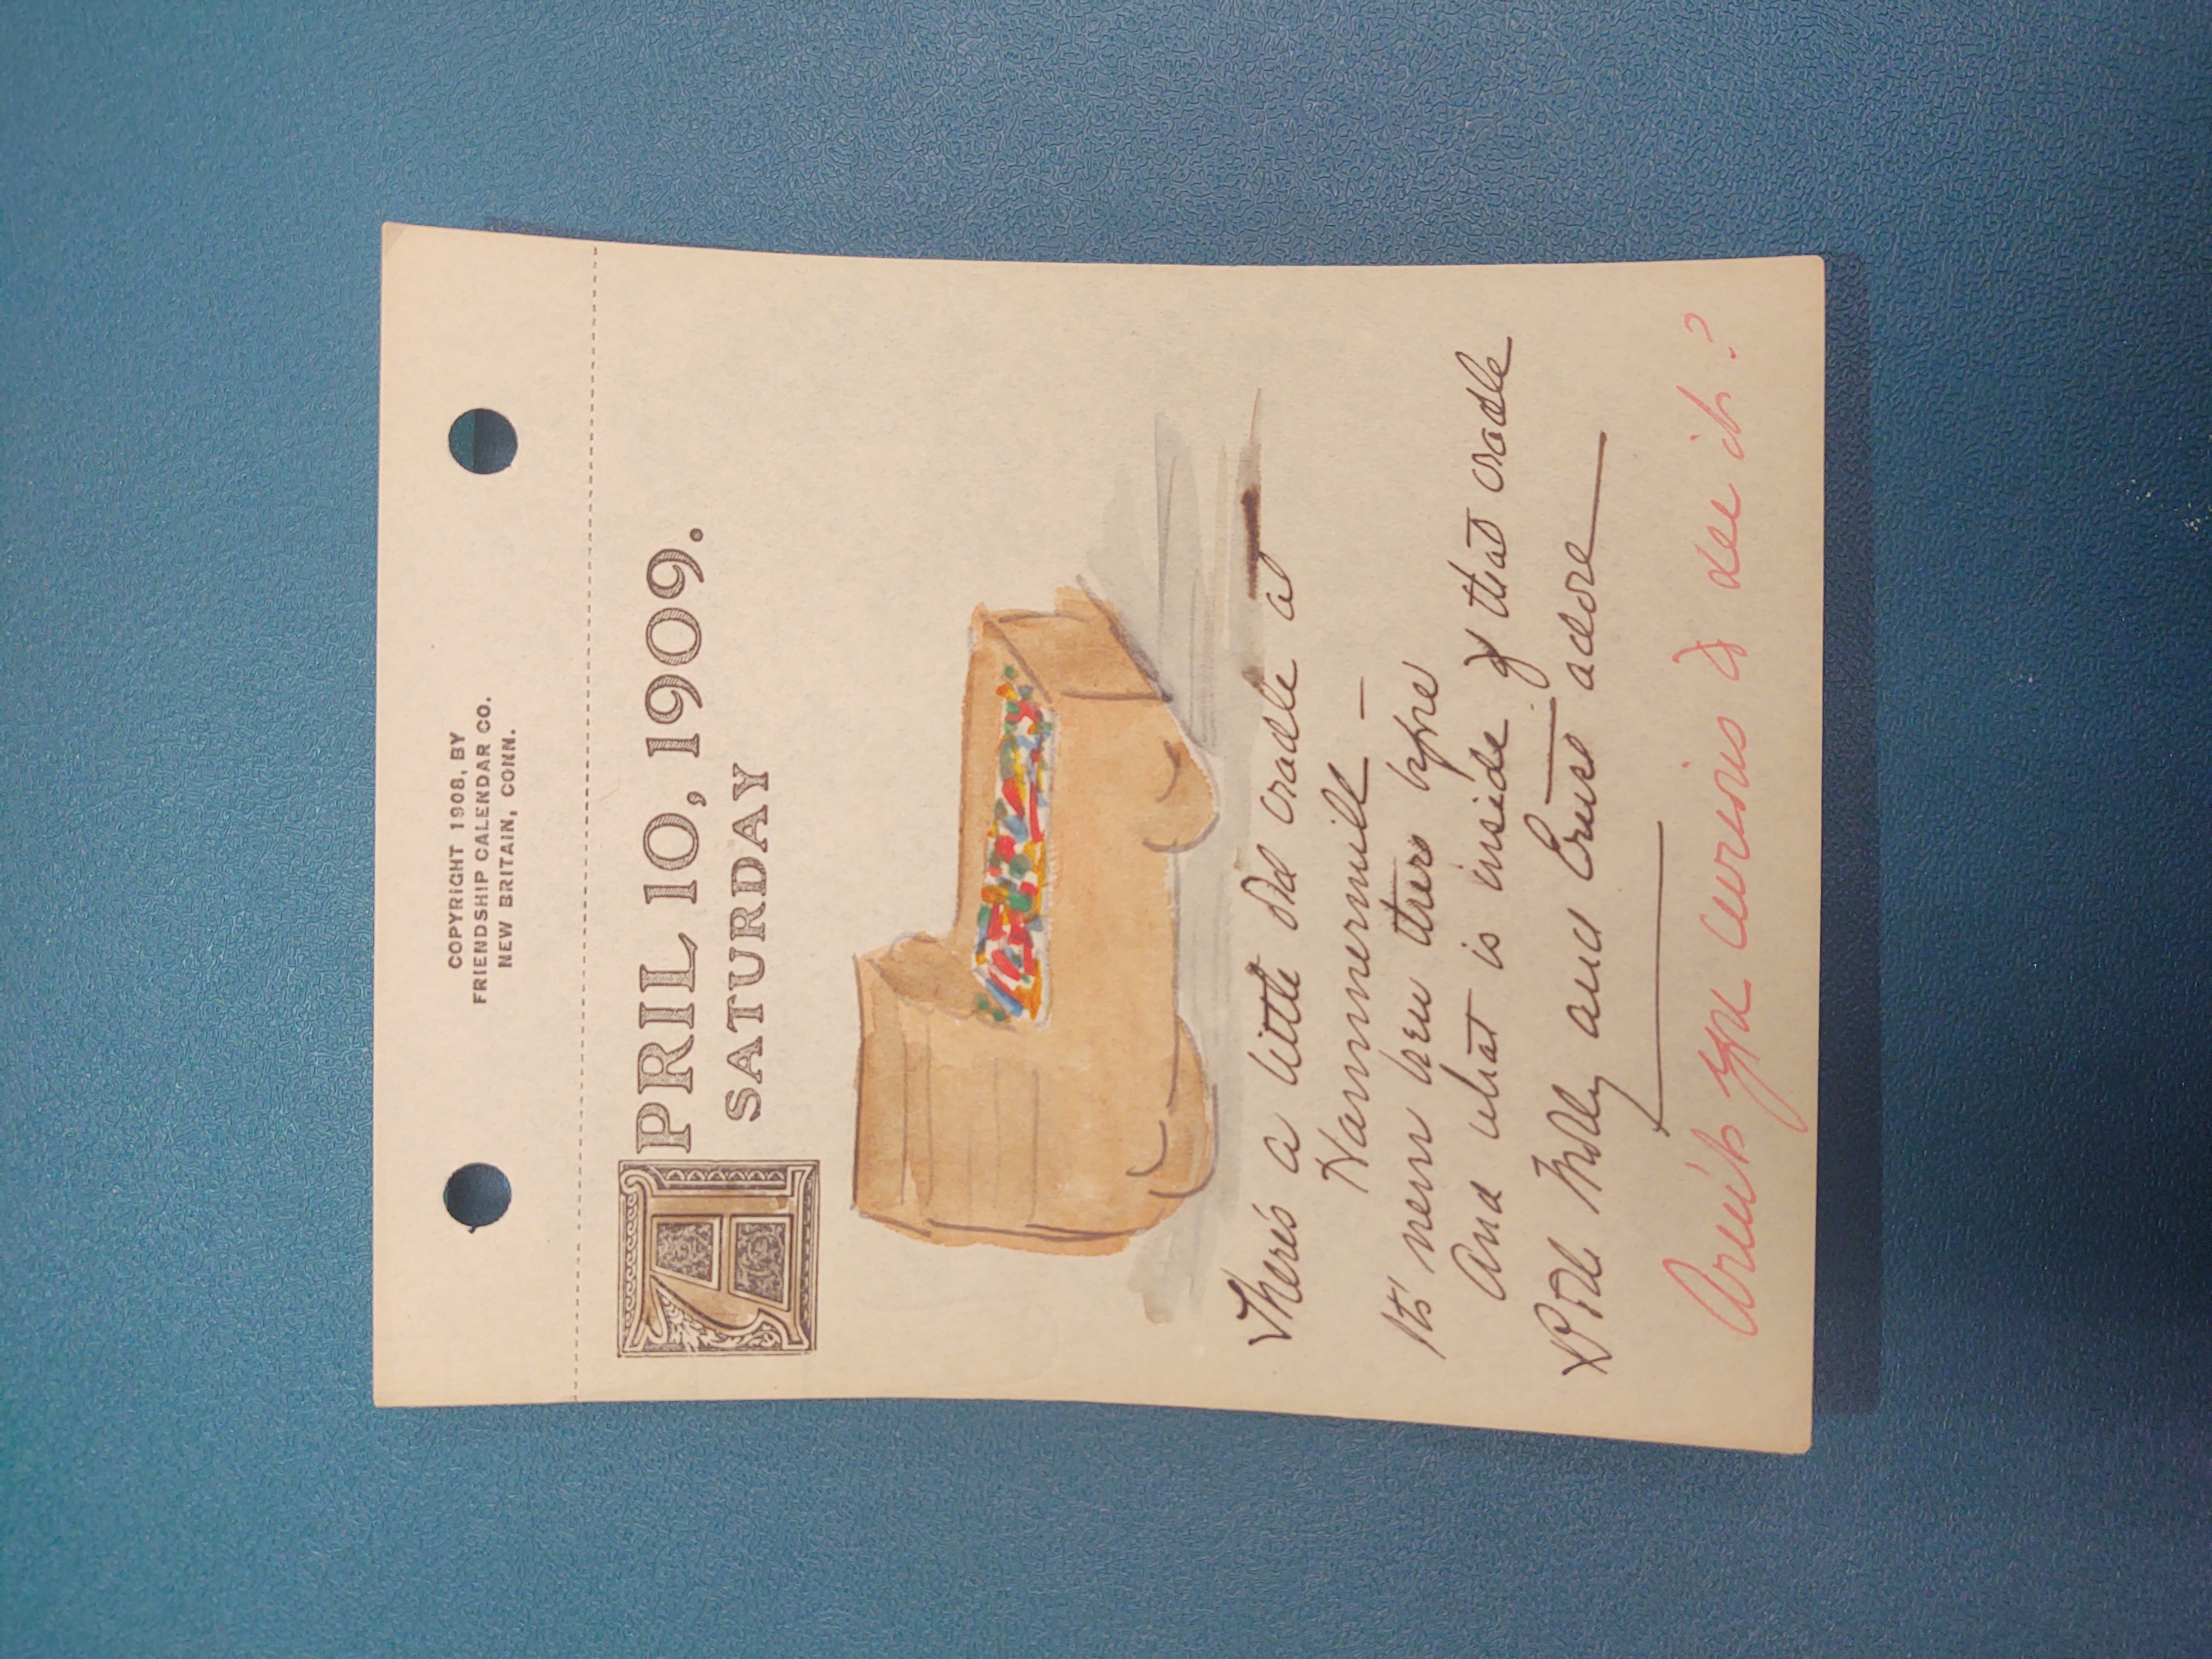 COPYRIGHT 1908, BY
FRIENDSHIP CALENDAR CO.
NEW BRITAIN, CONN.
APRIL 10, 1909.
SATURDAY
There's a little old cradle at
Hammermill –
It's never been there before
And what is inside of that cradle
Both Molly and Ernst adore
Aren't you curious to see it?